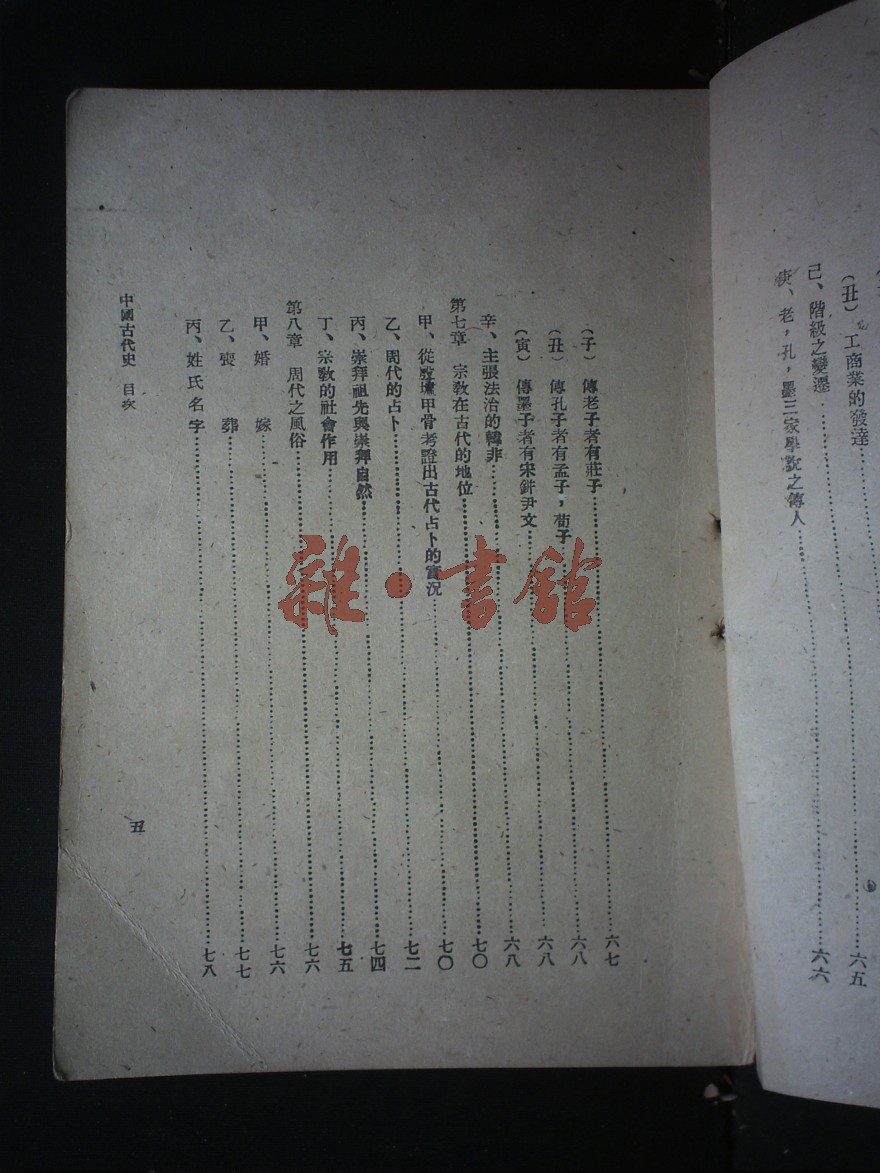 (丑) 工商業的發達……六五
己、階級之變遷……六六
庚、老，孔，墨三家學說之傳人
(子) 傳老子者有莊子……六七
(丑) 傳孔子者有孟子，荀子……六八
(寅) 傳墨子者有宋鈃尹文……六八
辛、主張法治的韓非……六八
第七章 宗教在古代的地位……七〇
甲、從殷墟甲骨考證出古代占卜的實況……七〇
乙、周代的占卜……七二
丙、崇拜祖先與崇拜自然……七四
丁、宗教的社會作用……七五
第八章 周代之風俗……七六
甲、婚 嫁……七六
乙、喪 葬……七七
丙、姓氏名字……七八
中國古代史 目次
五
雜·書館